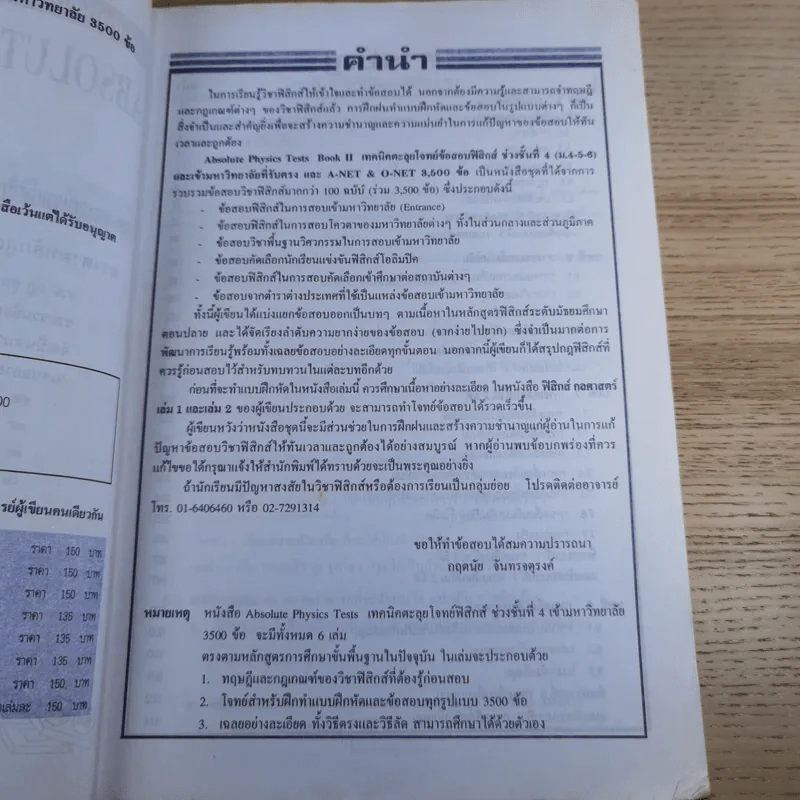 มหาวิทยาลัย 3500 ข้อ
ABSOLUT
สือเว้นแต่ได้รับอนุญาต
00
รย์ผู้เขียนคนเดียวกัน
ราคา 150 บาท
ราคา 150 บาท
ราคา 150 บาท
ราคา 135 บาท
ราคา 135 บาท
ราคา 135 บาท
ราคา 150 บาท
เล่มละ 150 บาท
คำนำ
ในการเรียนรู้วิชาฟิสิกส์ให้เข้าใจและทำข้อสอบได้ นอกจากต้องมีความรู้และสามารถจำทฤษฎี
และกฎเกณฑ์ต่างๆ ของวิชาฟิสิกส์แล้ว การฝึกฝนทำแบบฝึกหัดและข้อสอบในรูปแบบต่างๆ ก็เป็น
สิ่งจำเป็นและสำคัญยิ่งเพื่อจะสร้างความชำนาญและความแม่นยำในการแก้ปัญหาของข้อสอบให้ทัน
เวลาและถูกต้อง
Absolute Physics Tests Book II เทคนิคตะลุยโจทย์ข้อสอบฟิสิกส์ ช่วงชั้นที่ 4 (ม.4-5-6)
และเข้ามหาวิทยาลัยที่รับตรง และ A-NET & O-NET 3,500 ข้อ เป็นหนังสือชุดที่ได้จากการ
รวบรวมข้อสอบวิชาฟิสิกส์มากกว่า 100 ฉบับ (ร่วม 3,500 ข้อ) ซึ่งประกอบดังนี้
- ข้อสอบฟิสิกส์ในการสอบเข้ามหาวิทยาลัย (Entrance)
- ข้อสอบฟิสิกส์ในการสอบโควตาของมหาวิทยาลัยต่างๆ ทั้งในส่วนกลางและส่วนภูมิภาค
- ข้อสอบวิชาพื้นฐานวิศวกรรมในการสอบเข้ามหาวิทยาลัย
- ข้อสอบคัดเลือกนักเรียนแข่งขันฟิสิกส์โอลิมปิค
- ข้อสอบฟิสิกส์ในการสอบคัดเลือกเข้าศึกษาต่อสถาบันต่างๆ
- ข้อสอบจากตำราต่างประเทศที่ใช้เป็นแหล่งข้อสอบเข้ามหาวิทยาลัย
ทั้งนี้ผู้เขียนได้แบ่งแยกข้อสอบออกเป็นบทๆ ตามเนื้อหาในหลักสูตรฟิสิกส์ระดับมัธยมศึกษา
ตอนปลาย และได้จัดเรียงลำดับความยากง่ายของข้อสอบ (จากง่ายไปยาก) ซึ่งจำเป็นมากต่อการ
พัฒนาการเรียนรู้พร้อมทั้งเฉลยข้อสอบอย่างละเอียดทุกขั้นตอน นอกจากนี้ผู้เขียนก็ได้สรุปกฎฟิสิกส์ที่
ควรรู้ก่อนสอบไว้สำหรับทบทวนในแต่ละบทอีกด้วย
ก่อนที่จะทำแบบฝึกหัดในหนังสือเล่มนี้ ควรศึกษาเนื้อหาอย่างละเอียด ในหนังสือ ฟิสิกส์ กลศาสตร์
เล่ม 1 และเล่ม 2 ของผู้เขียนประกอบด้วย จะสามารถทำโจทย์ข้อสอบได้รวดเร็วขึ้น
ผู้เขียนหวังว่าหนังสือชุดนี้จะมีส่วนช่วยในการฝึกฝนและสร้างความชำนาญแก่ผู้อ่านในการแก้
ปัญหาข้อสอบวิชาฟิสิกส์ให้ทันเวลาและถูกต้องได้อย่างสมบูรณ์ หากผู้อ่านพบข้อบกพร่องที่ควร
แก้ไขขอได้กรุณาแจ้งให้สำนักพิมพ์ได้ทราบด้วยจะเป็นพระคุณอย่างยิ่ง
ถ้านักเรียนมีปัญหาสงสัยในวิชาฟิสิกส์หรือต้องการเรียนเป็นกลุ่มย่อย โปรดติดต่ออาจารย์
โทร. 01-6406460 หรือ 02-7291314
ขอให้ทำข้อสอบได้สมความปรารถนา
กฤตนัย จันทรจตุรงค์
หมายเหตุ หนังสือ Absolute Physics Tests เทคนิคตะลุยโจทย์ฟิสิกส์ ช่วงชั้นที่ 4 เข้ามหาวิทยาลัย
3500 ข้อ จะมีทั้งหมด 6 เล่ม
ตรงตามหลักสูตรการศึกษาขั้นพื้นฐานในปัจจุบัน ในเล่มจะประกอบด้วย
1. ทฤษฎีและกฎเกณฑ์ของวิชาฟิสิกส์ที่ต้องรู้ก่อนสอบ
2. โจทย์สำหรับฝึกทำแบบฝึกหัดและข้อสอบทุกรูปแบบ 3500 ข้อ
3. เฉลยอย่างละเอียด ทั้งวิธีตรงและวิธีลัด สามารถศึกษาได้ด้วยตัวเอง